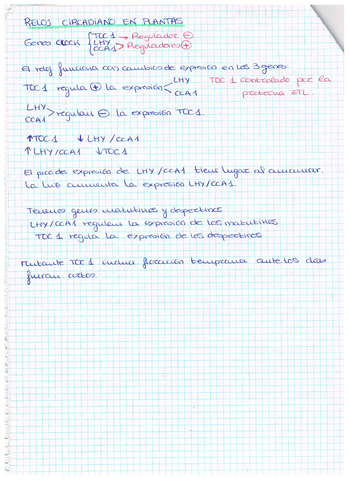 RELOJ CIRCADIANO EN PLANTAS
Genes CLOCK { TOC 1 → Regulador ⊖
LHY
CCA1 > Reguladores ⊕
El reloj funciona con cambios de expresión en los 3 genes.
TOC 1 regula ⊕ la expresión < LHY
CCA1
TOC 1 controlado por la proteína ZTL
LHY
CCA1 > regulan ⊖ la expresión TOC 1.
↑TOC 1 ↓ LHY / CCA1
↑ LHY/CCA1 ↓TOC 1
El pico de expresión de LHY / CCA1 tiene lugar al amanecer.
La luz aumenta la expresión LHY/CCA1.
Tenemos genes matutinos y despectinos
LHY/CCA1 regulan la expresión de los matutinos
TOC 1 regula la expresión de los despectinos
Mutante TOC 1 induce floración temprana ante los días
fueran cortos.